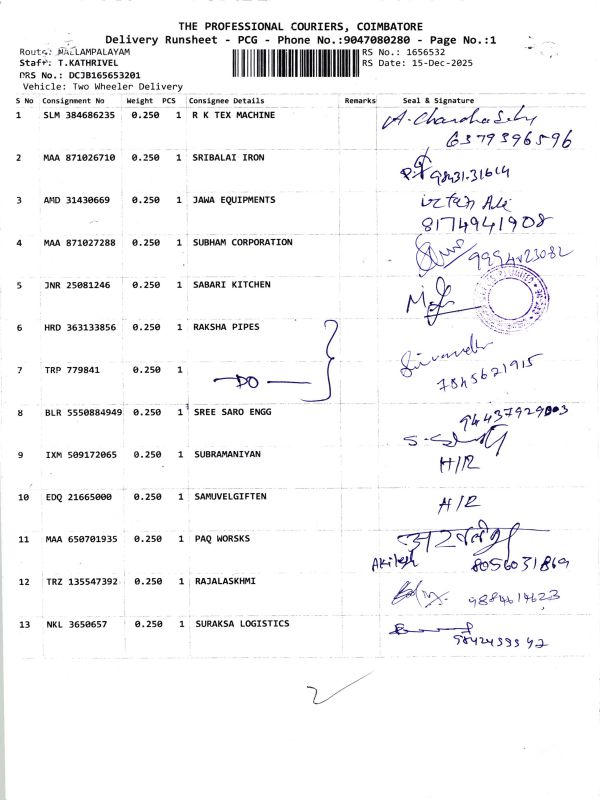 THE PROFESSIONAL COURIERS, COIMBATORE
Delivery Runsheet - PCG - Phone No.:9047080280 - Page No.:1
Route: NALLAMPALAYAM RS No.: 1656532
Staff: T.KATHRIVEL RS Date: 15-Dec-2025
DRS No.: DCJB165653201
Vehicle: Two Wheeler Delivery
S No Consignment No Weight PCS Consignee Details Remarks Seal & Signature
1 SLM 384686235 0.250 1 R K TEX MACHINE
6379396596
2 MAA 871026710 0.250 1 SRIBALAI IRON
98431.31614
3 AMD 31430669 0.250 1 JAWA EQUIPMENTS
8174941908
4 MAA 871027288 0.250 1 SUBHAM CORPORATION
5 JNR 25081246 0.250 1 SABARI KITCHEN
6 HRD 363133856 0.250 1 RAKSHA PIPES
7 TRP 779841 0.250 1
DO
7845621915
8 BLR 5550884949 0.250 1 SREE SARO ENGG
9 IXM 509172065 0.250 1 SUBRAMANIYAN
H/R
10 EDQ 21665000 0.250 1 SAMUVELGIFTEN
H/R
11 MAA 650701935 0.250 1 PAQ WORSKS
Akilesh 8056031869
12 TRZ 135547392 0.250 1 RAJALASKHMI
9884614623
13 NKL 3650657 0.250 1 SURAKSA LOGISTICS